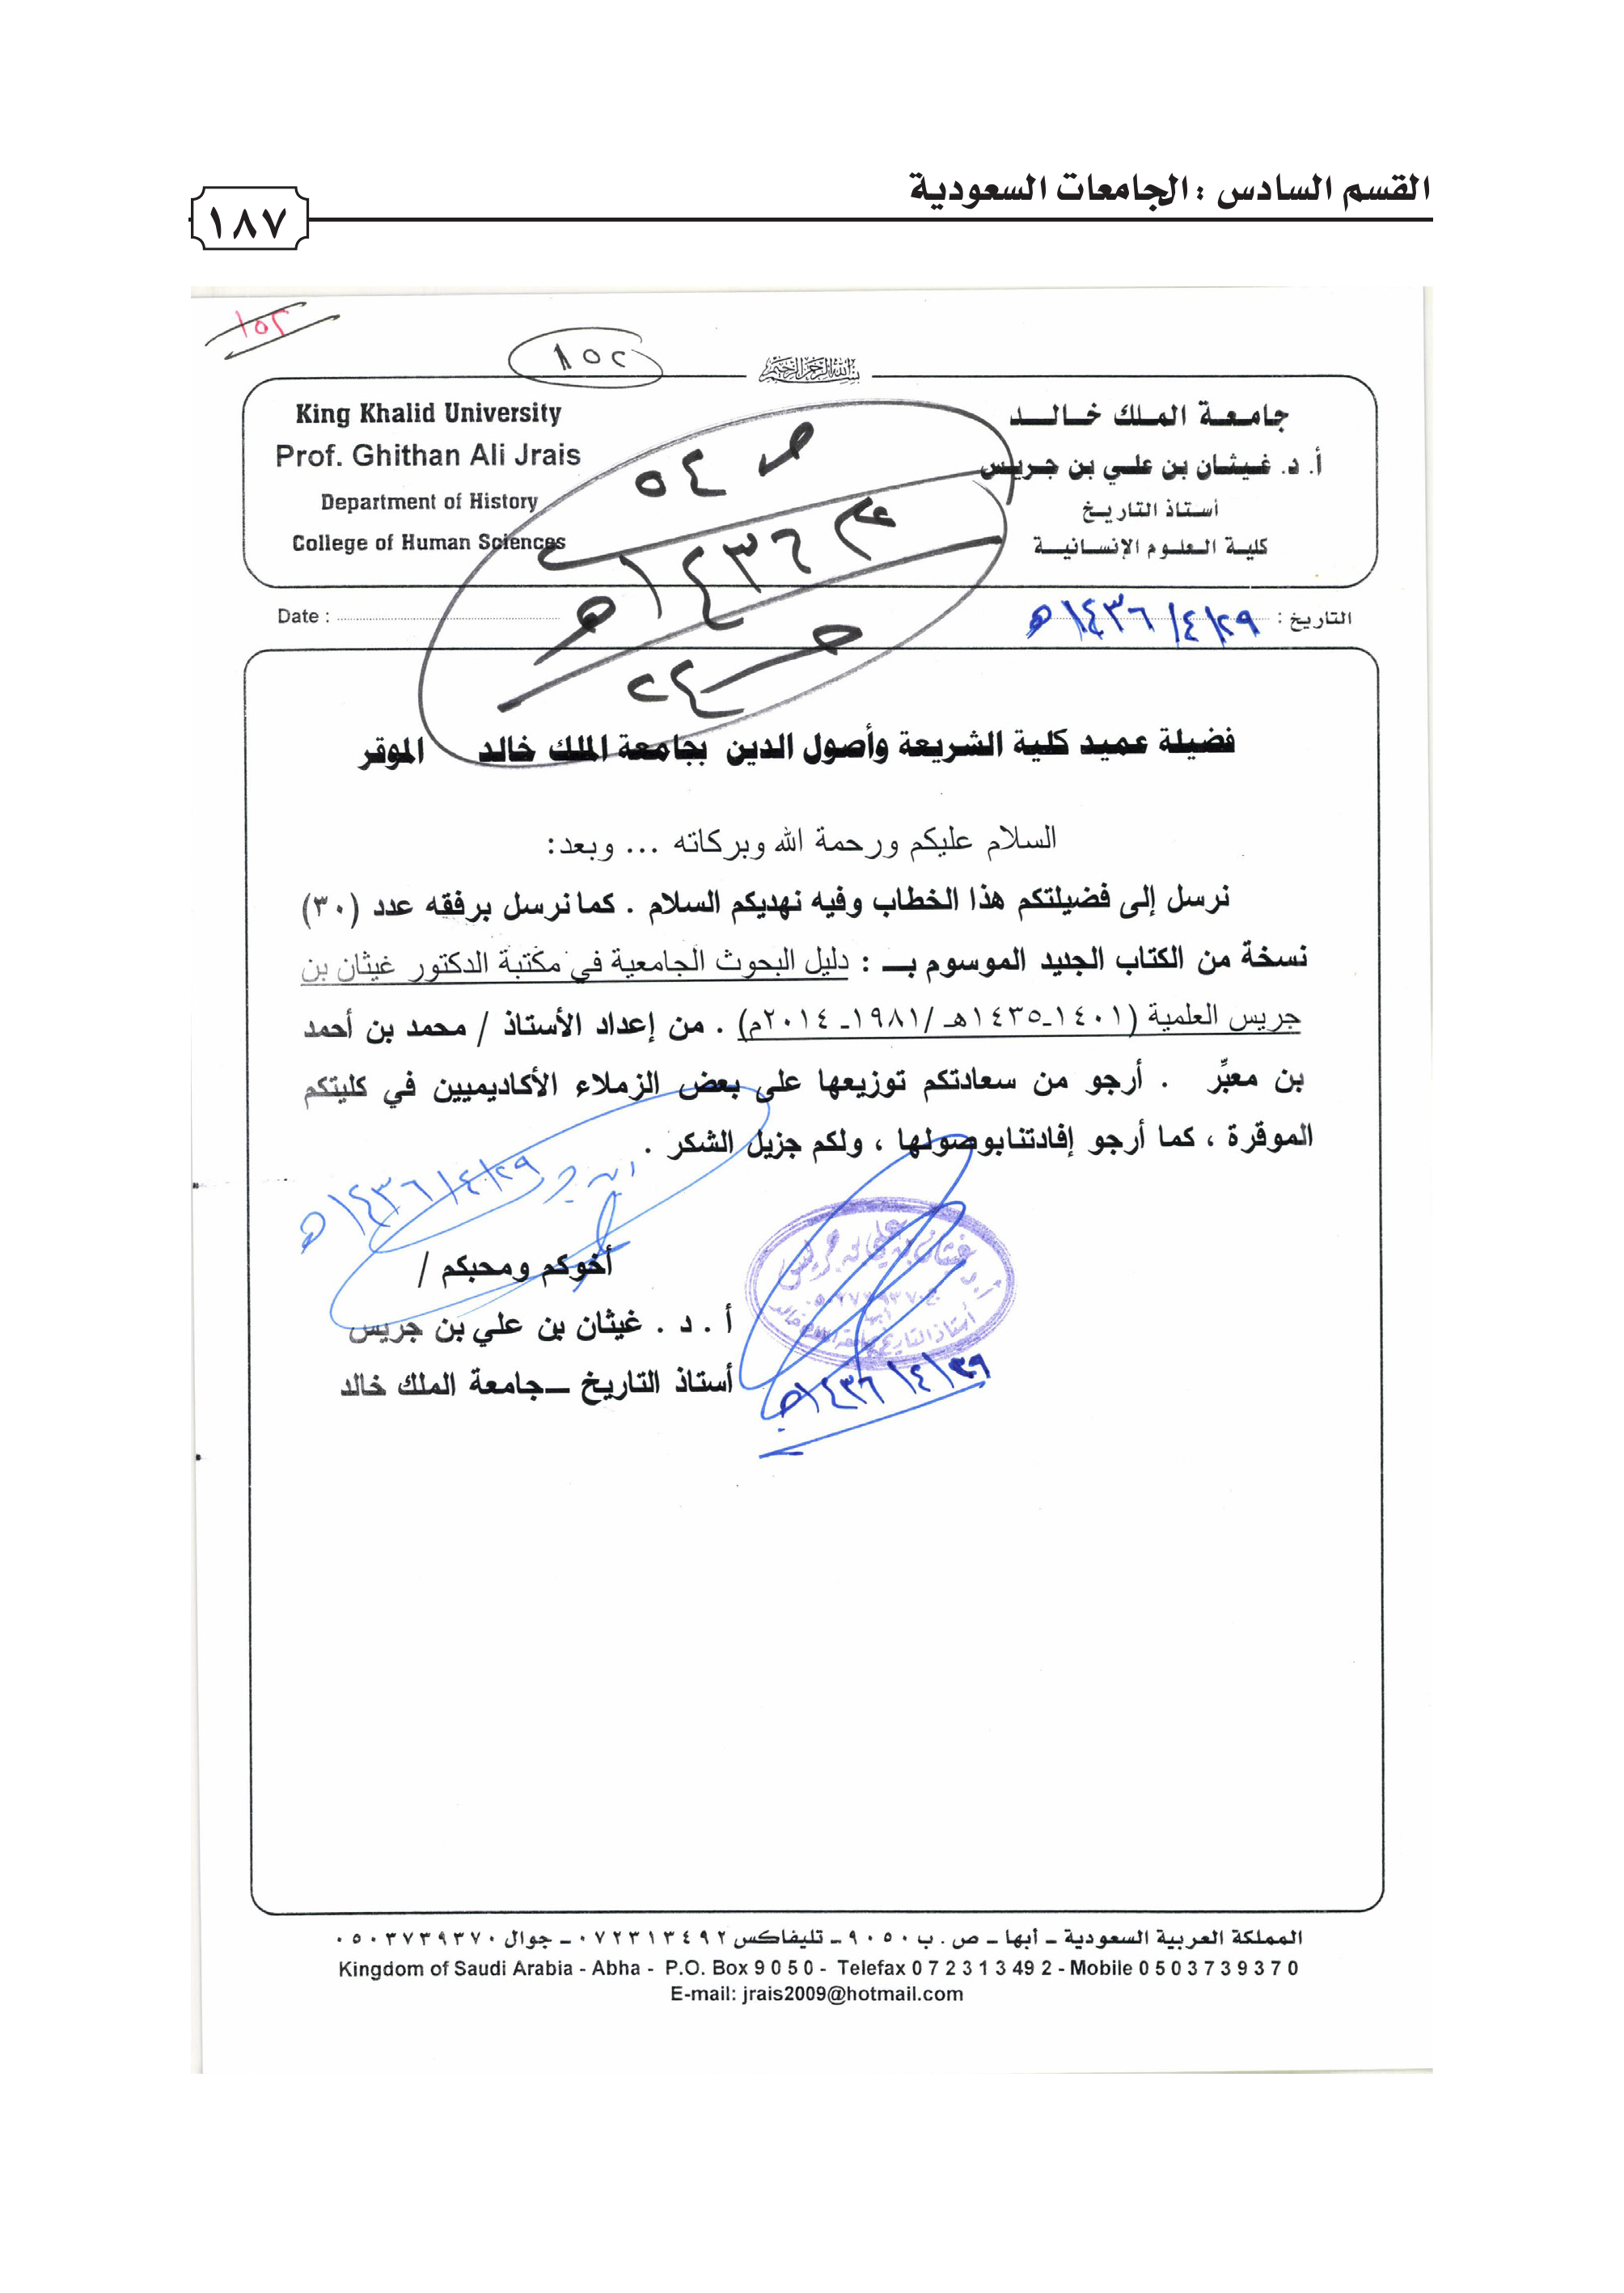 القسم السادس : الجامعات السعودية
١٨٧
١٥٢
١٥٢
بسم الله الرحمن الرحيم
King Khalid University
Prof. Ghithan Ali Jrais
Department of History
College of Human Sciences
جامعة الملك خالد
أ. د. غيثان بن علي بن جريس
أستاذ التاريخ
كلية العلوم الإنسانية
ص ٥٤
عام ١٤٣٦هـ
حـ ٢٤
Date :
التاريخ : ٢٩/٤/١٤٣٦هـ
فضيلة عميد كلية الشريعة وأصول الدين بجامعة الملك خالد الموقر
السلام عليكم ورحمة الله وبركاته ... وبعد:
نرسل إلى فضيلتكم هذا الخطاب وفيه نهديكم السلام . كما نرسل برفقه عدد (٣٠)
نسخة من الكتاب الجديد الموسوم بـ : دليل البحوث الجامعية في مكتبة الدكتور غيثان بن
جريس العلمية (١٤٠١ـ١٤٣٥هـ /١٩٨١ـ ٢٠١٤م) . من إعداد الأستاذ / محمد بن أحمد
بن معبِّر . أرجو من سعادتكم توزيعها على بعض الزملاء الأكاديميين في كليتكم
الموقرة ، كما أرجو إفادتنابوصولها ، ولكم جزيل الشكر .
٢٩/٤/١٤٣٦هـ
أخوكم ومحبكم /
أ . د . غيثان بن علي بن جريس
أستاذ التاريخ ــ جامعة الملك خالد
أ.د غيثان بن علي بن جريس
أستاذ التاريخ بجامعة الملك خالد
٢٩/٤/١٤٣٦هـ
المملكة العربية السعودية ـ أبها ـ ص . ب ٩٠٥٠ ـ تليفاكس ٠٧٢٣١٣٤٩٢ ـ جوال ٠٥٠٣٧٣٩٣٧٠
Kingdom of Saudi Arabia - Abha - P.O. Box 9 0 5 0 - Telefax 0 7 2 3 1 3 49 2 - Mobile 0 5 0 3 7 3 9 3 7 0
E-mail: jrais2009@hotmail.com